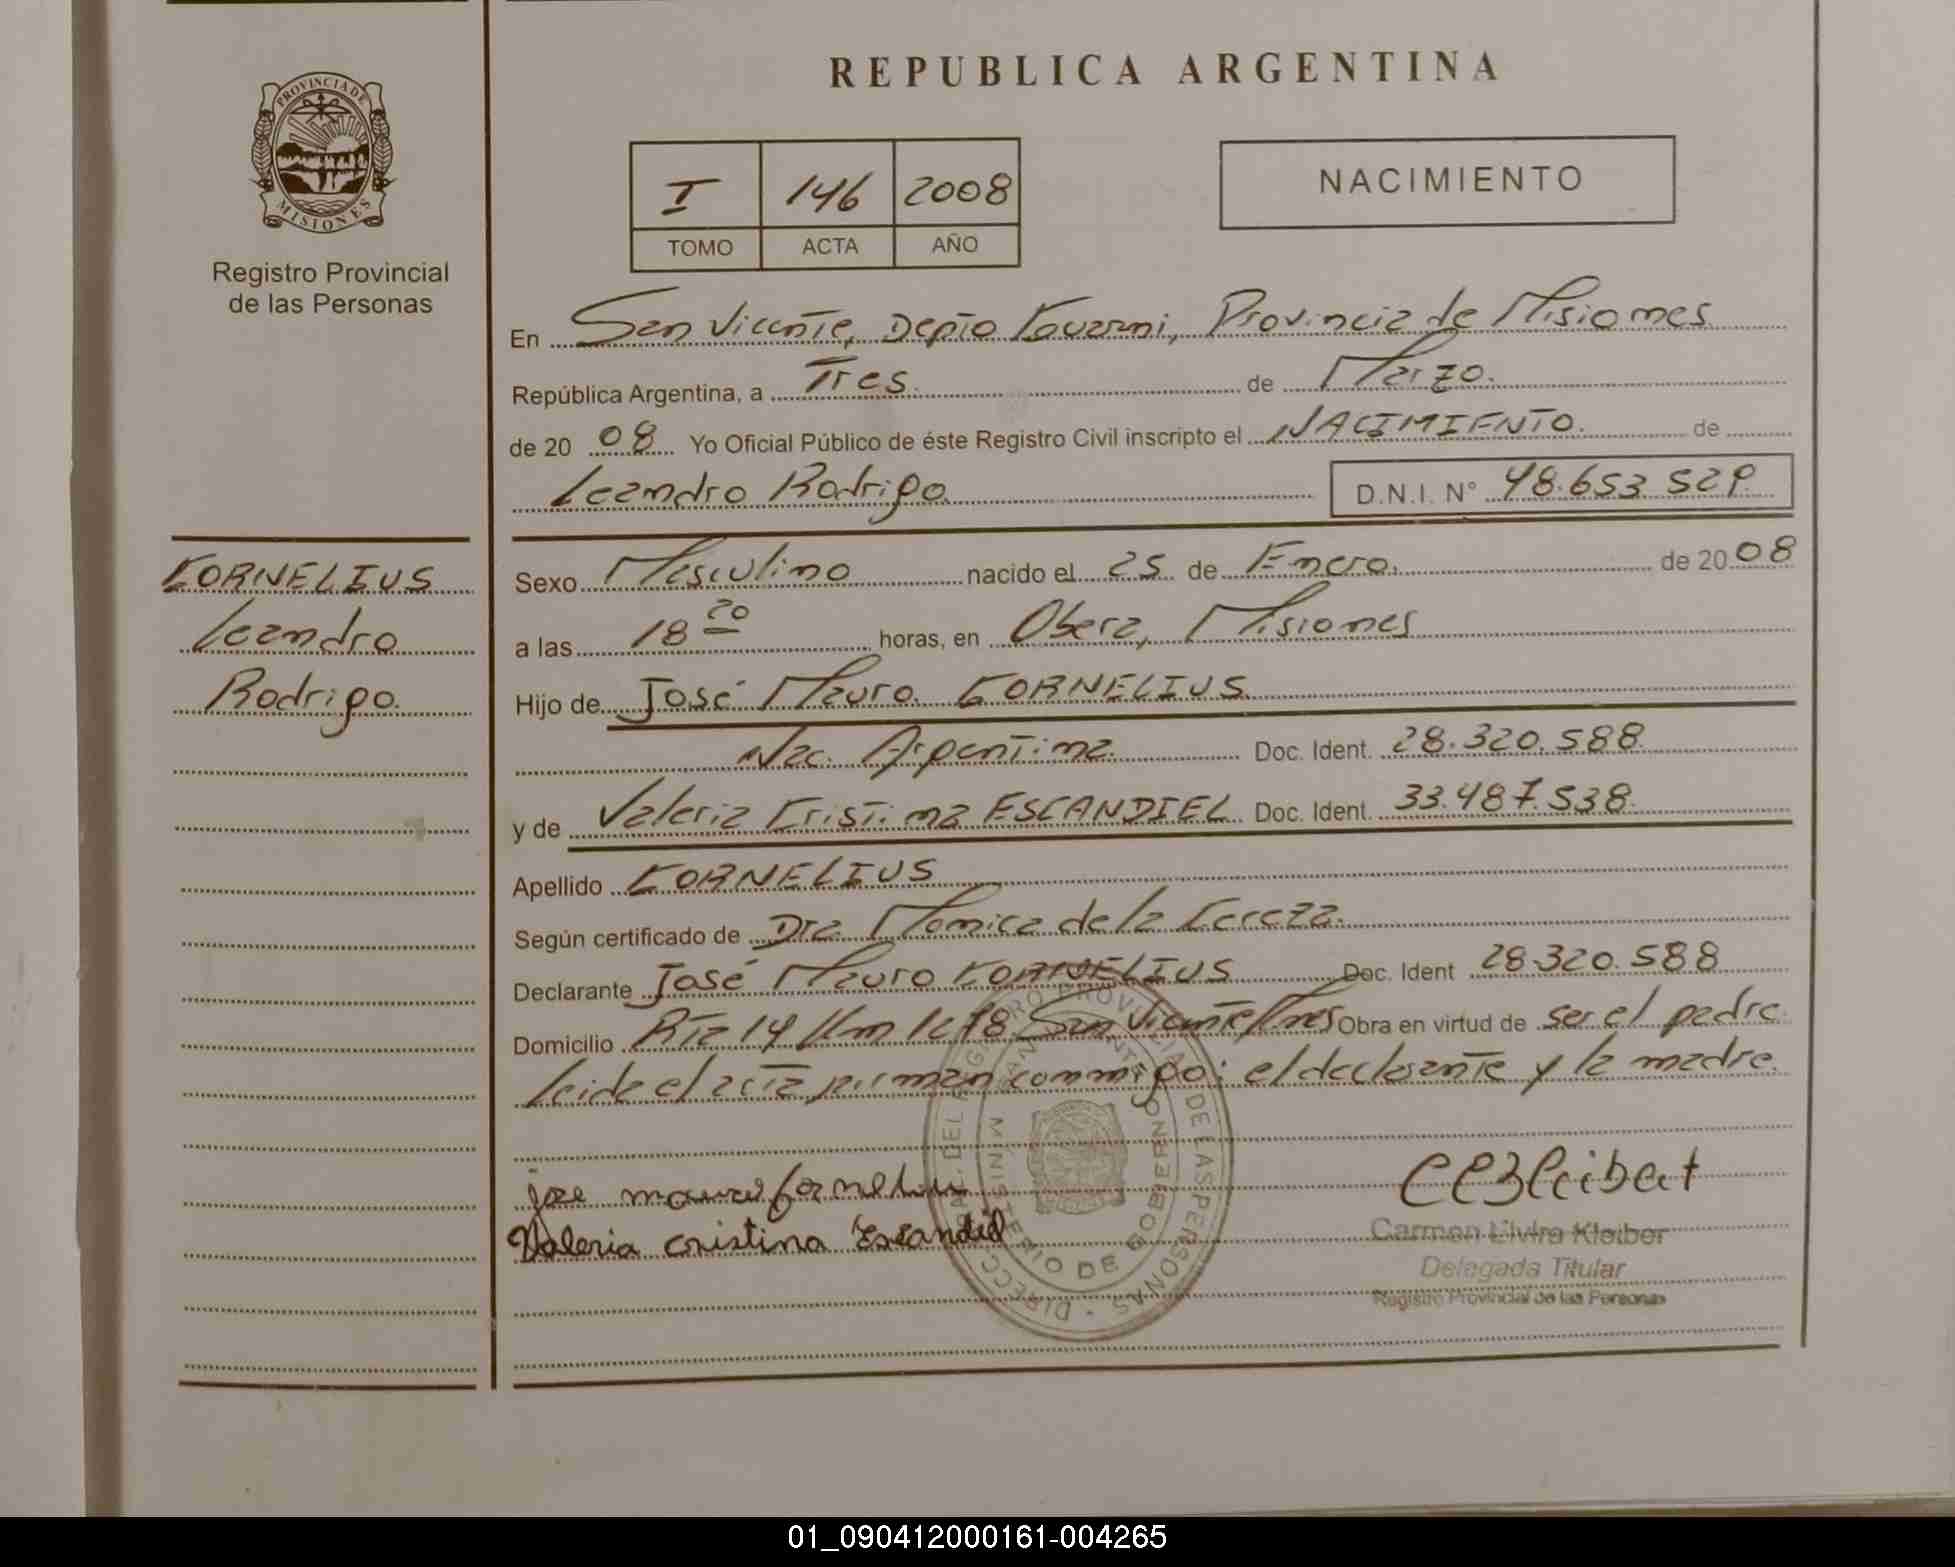 REPUBLICA ARGENTINA
PROVINCIA DE
MISIONES
Registro Provincial
de las Personas
I 146 2008
TOMO ACTA AÑO
NACIMIENTO
En San Vicente, Depto Guarani, Provincia de Misiones
República Argentina, a Tres de Marzo.
de 20 08 Yo Oficial Público de éste Registro Civil inscripto el NACIMIENTO. de
Leandro Rodrigo D.N.I. N° 48.653.529
CORNELIUS
Leandro
Rodrigo.
Sexo Masculino nacido el 25 de Enero. de 20 08
a las 18 20 horas, en Obera, Misiones
Hijo de José Mauro CORNELIUS
Nac. Argentina. Doc. Ident. 28.320.588
y de Valeria Cristina ESCANDIEL Doc. Ident. 33.487.538
Apellido CORNELIUS
Según certificado de Dra. Monica de la
Declarante José Mauro CORNELIUS Doc. Ident 28.320.588
Domicilio Rta 14 Km San Vicente Mnes Obra en virtud de ser el padre
leida el acta firman conmigo: el declarante y la madre.
jose mauro cornelius
Valeria cristina Escandiel
Carmen Elvira Kleiber
Delegada Titular
Registro Provincial de las Personas
MINISTERIO DE GOBIERNO
01_090412000161-004265